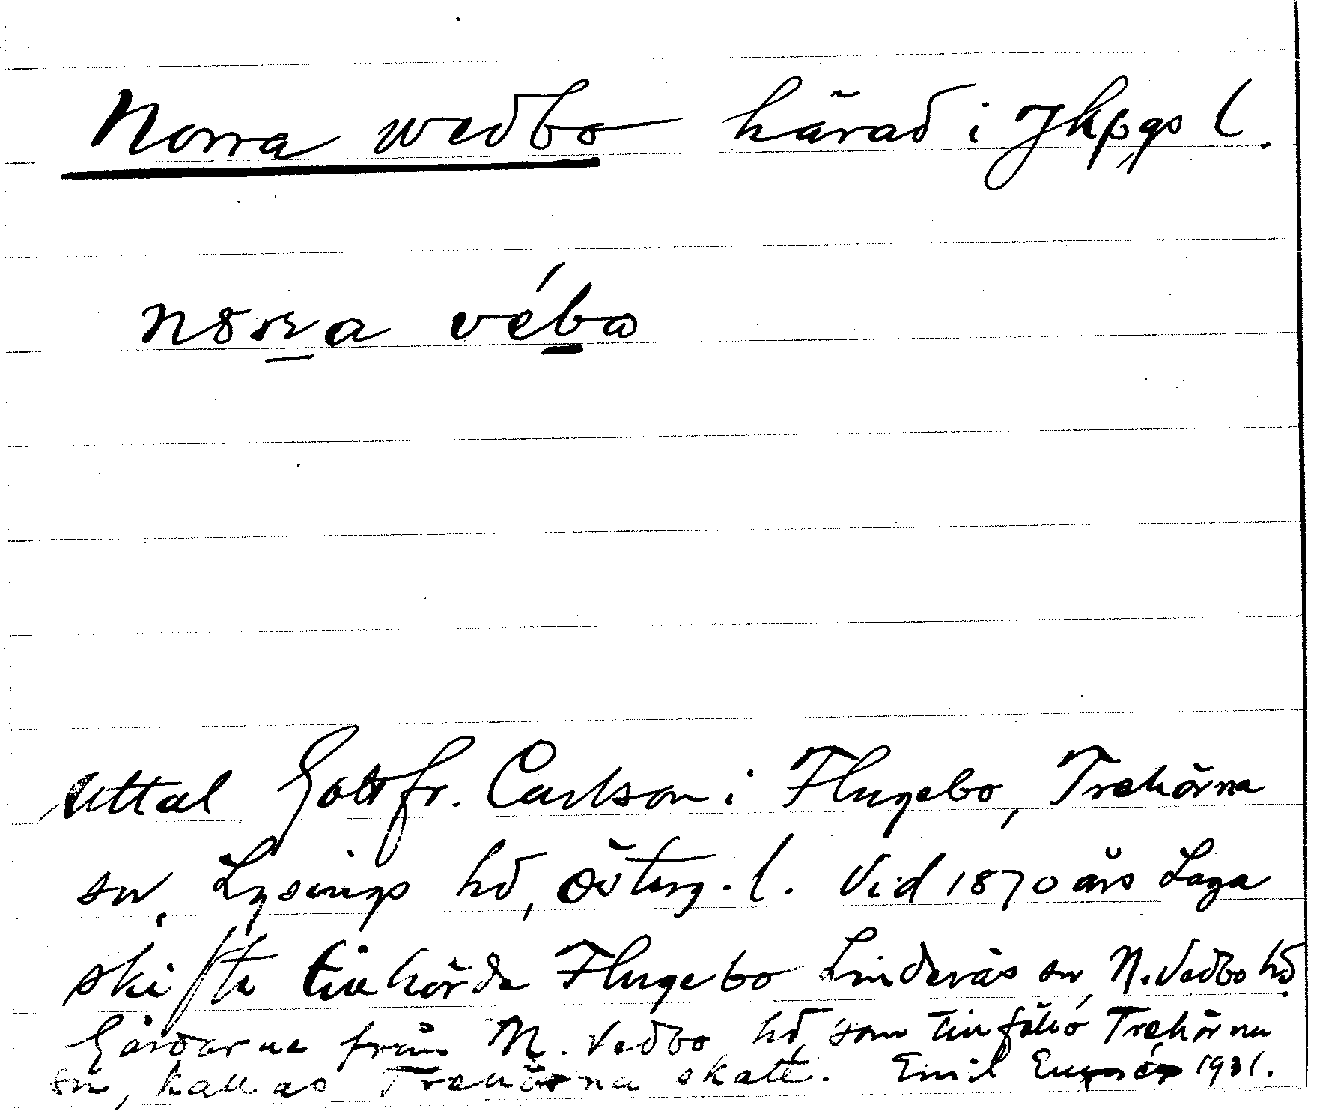 Norra wedbo härad i Jkpgs l.
Uttal Gottfr. Carlson i Flugebo, Trehörna
sn, Lysings hd, Österg. l. Vid 1870 års Laga
skifte tillhörde Flugebo Linderås sn N. Vedbo hd
Gårdarne från N. Vedbo hd, som Trehörna
sn, kallas Trehörna skate. Emil 1931.